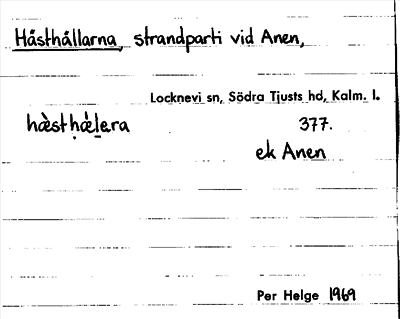 Hästhällarna, strandparti vid Anen,
Locknevi sn, Södra Tjusts hd, Kalm. l.
hæ̀stḥǽḷera 377.
ek Anen
Per Helge 1969